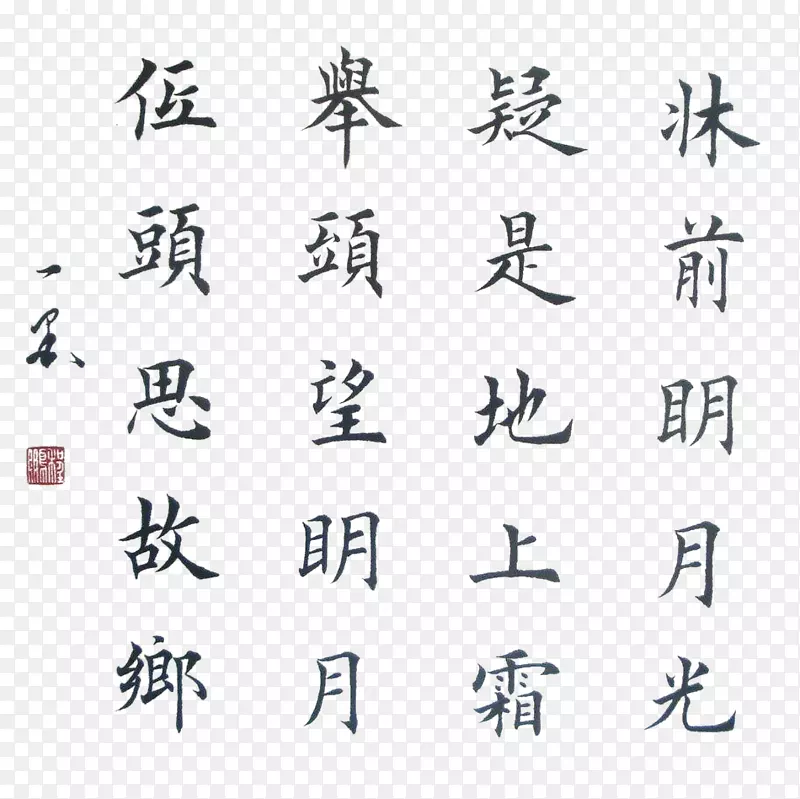 牀前明月光
疑是地上霜
舉頭望明月
低頭思故鄉
一墨